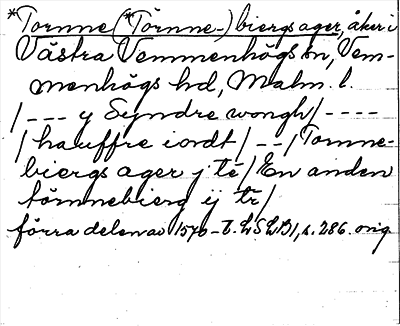 *Tornne (*Törnne-) biergs ager, åker i
Västra Vemmenhögs sn, Vem-
menhögs hd, Malm. l.
/--- y Syndre wongh/----
/hauffre iordt/--/Tornne-
biergs ager j te/En anden
törnnebierg ij tr/
förra delen av 1570-t. LSLB1, s. 286. orig